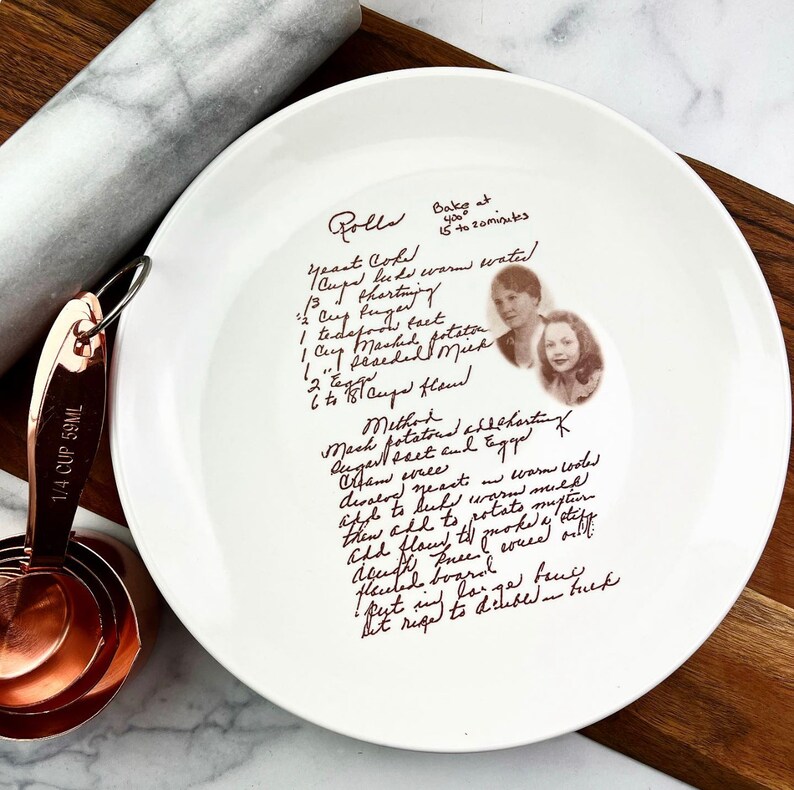 Rolls
Bake at
400°
15 to 20 minutes
yeast Coke
1 Cups luke warm water
1/3 " shortning
1/2 Cup Sugar
1 teaspoon salt
1 Cup Mashed potatoes
1 " Scalded Milk
2 Eggs
6 to 8 Cups flour
Method
Mash potatoes add shortning
Sugar salt and Eggs
Cream well
disolve yeast in warm water
add to luke warm milk
then add to potato mixture
add flour to make a stiff
dough kneed well on
floured board
put in large bowl
let rise to double in bulk
1/4 CUP 59ML